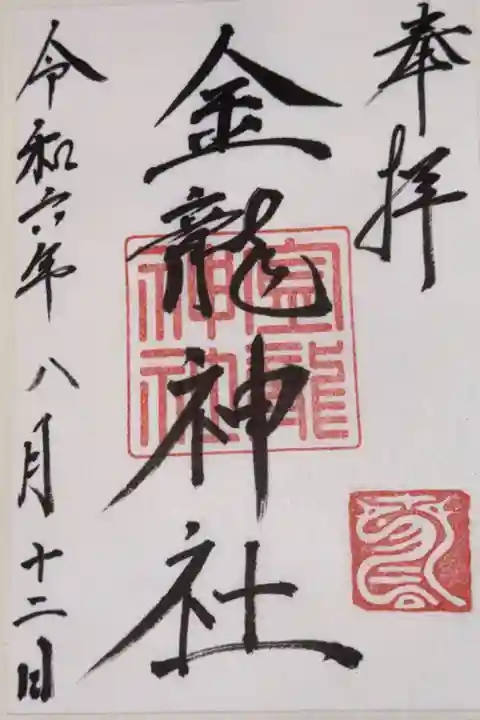 奉拝
金龍神社
金龍神社
令和六年八月十二日